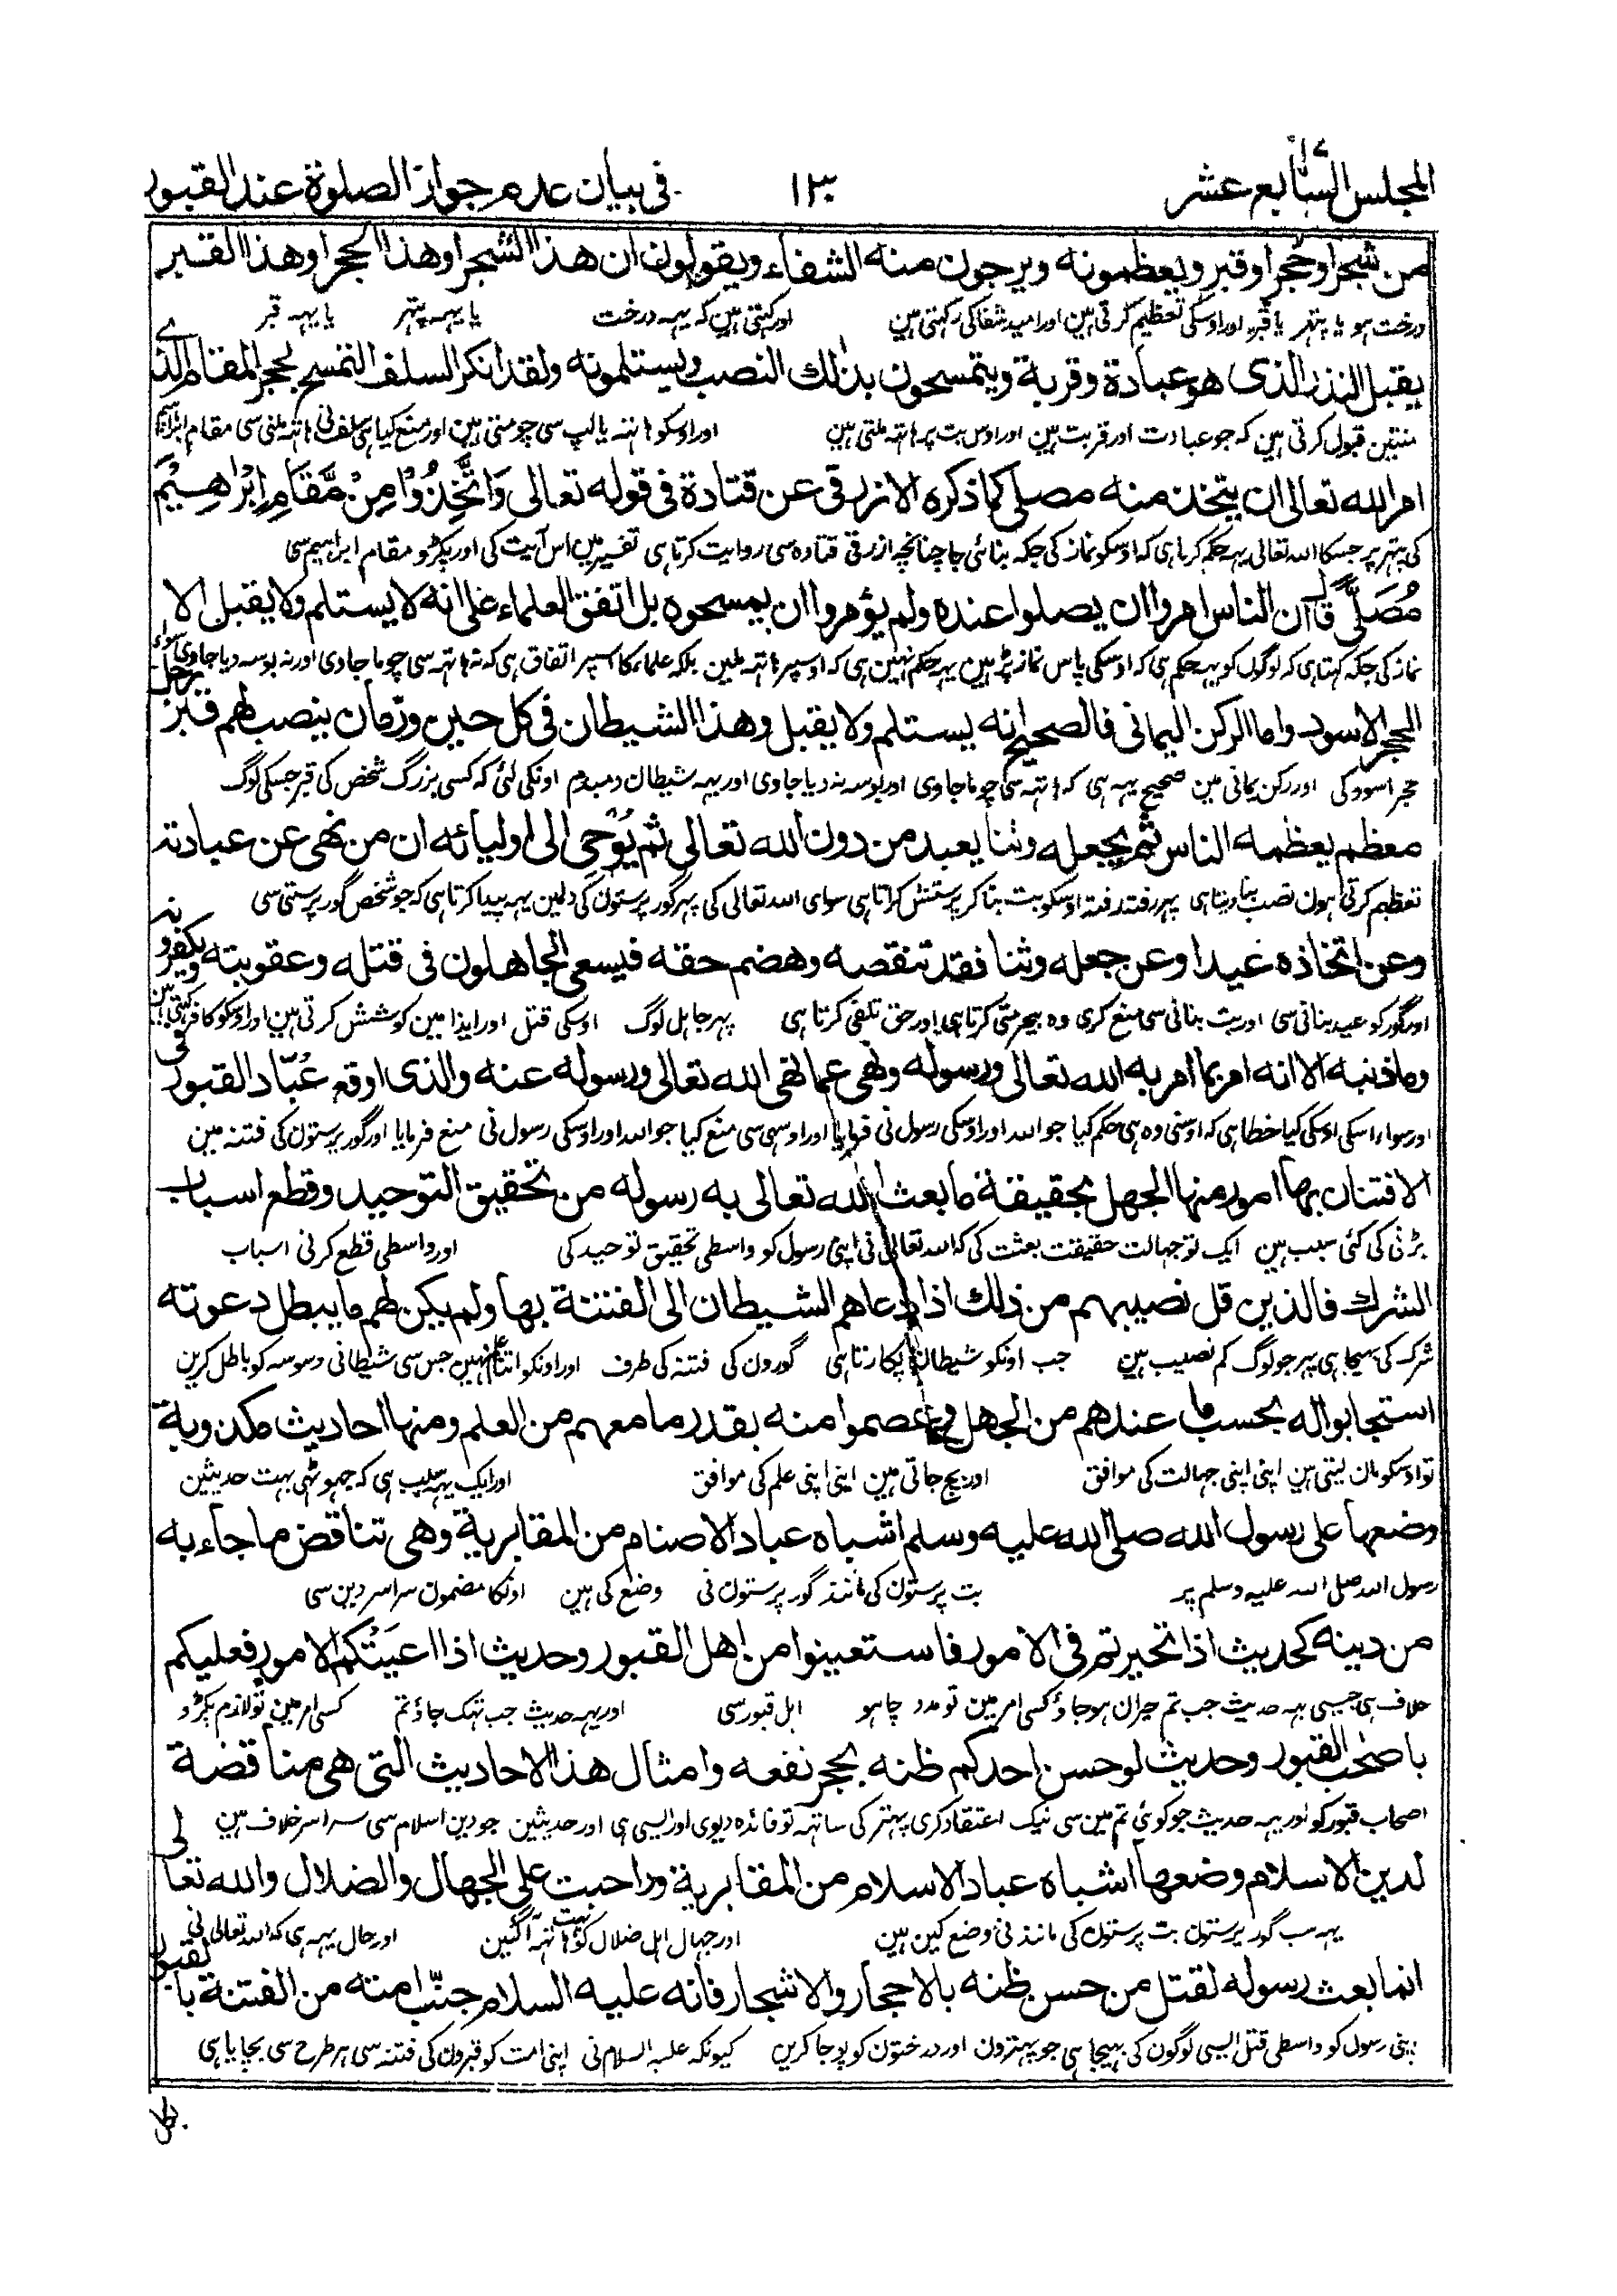 المجلس السابع عشر ١٧
١٣٠
في بيان عدم جواز الصلوة عند القبور
من شجر او حجر او قبر ويعظمونه ويرجون منه الشفاء ويقولون ان هذا الشجر او هذا الحجر او هذا القبر
درخت ہو یا پتہر یا قبر اور اوسکی تعظیم کرتی ہین اور امید شفا کی رکہتی ہین اور کہتی ہین کہ یہہ درخت یا یہہ پتہر یا یہہ قبر
يقبل النذر الذى هو عبادة وقربة ويتمسحون بذلك النصب ويستلمونه ولقد انكر السلف التمسح بحجر المقام الذے
منتین قبول کرتی ہین کہ جو عبادت اور قربت ہین اور اوس بت پر ہاتہہ ملتی ہین اور اوسکو ہاتہہ یا لب سی چومتی ہین اور منع کیا ہی سلف نی ہاتہہ ملنی سی مقام ابراہیم
امر الله تعالى ان يتخذ منه مصلى كما ذكره الازرقى عن قتادة فى قوله تعالى وَاتَّخِذُوْا مِنْ مَّقَامِ اِبْرٰهِيْمَ
کی پتہر پر جسکا اللہ تعالی یہہ حکم کرتا ہی کہ اوسکو نماز کی جگہ بنائی جا چنانچہ ازرقی قتادہ سی روایت کرتا ہی تفسیر مین اس آیت کی اور پکڑو مقام ابراہیم سی
مُصَلًّى قال ان الناس امروا ان يصلوا عنده ولم يؤمروا ان يمسحوه بل اتفق العلماء على انه لا يستلم ولا يقبل الا
نماز کی جگہ کہتا ہی کہ لوگون کو یہہ حکم ہی کہ اوسکی پاس نماز پڑہین یہہ حکم نہین ہی کہ اوسپر ہاتہہ ملین بلکہ علماء کا اسپر اتفاق ہی کہ نہ ہاتہہ سی چوما جاوی اور نہ بوسہ دیا جاوی سواء
الحجر الاسود واما الركن اليمانى فالصحيح انه يستلم ولا يقبل وهذا الشيطان فى كل حين وزمان ينصب لهم قبر رجل
حجر اسود کی اور رکن یمانی مین صحیح یہہ ہی کہ ہاتہہ سی چوما جاوی اور بوسہ نہ دیا جاوی اور یہہ شیطان دمبدم اونکی لئی کہ کسی بزرگ شخص کی قبر جسکی لوگ
معظم يعظمه الناس ثم يجعله وثنا يعبد من دون الله تعالى ثم يُوْحِى الى اوليائه ان من نهى عن عبادته
تعظیم کرتی ہون نصب بنا دیتا ہی پہر رفتہ رفتہ اوسکو بت بنا کر پرستش کراتا ہی سوای اللہ تعالی کی پہر گور پرستون کی دلین یہہ پیدا کرتا ہی کہ جو شخص گور پرستی سی
وعن اتخاذه عيدا وعن جعله وثنا فقد تنقصه وهضم حقه فيسعى الجاهلون فى قتله وعقوبته ويكفرونه
اور گور کو عید بنانی سی اور بت بنانی سی منع کری وہ بیحرمتی کرتا ہی اور حق تلفی کرتا ہی پہر جاہل لوگ اوسکی قتل اور ایذا مین کوشش کرتی ہین اور اوسکو کافر کہتی ہین
وما ذنبه الا انه امر بما امر به الله تعالى ورسوله ونهى عما نهى الله تعالى ورسوله عنه والذى اوقع عُبّاد القبور فى
اور سواء اسکی اوسکی کیا خطا ہی کہ اوسنی وہ ہی حکم کیا جو اللہ اور اوسکی رسول نی فرمایا اور اوسہی سی منع کیا جو اللہ اور اوسکی رسول نی منع فرمایا اور گور پرستون کی فتنہ مین
الافتنان بها امور منها الجهل بحقيقة ما بعث الله تعالى به رسوله من تحقيق التوحيد وقطع اسباب
پڑنی کی کئی سبب ہین ایک تو جہالت حقیقت بعثت کی کہ اللہ تعالی نی اپنی رسول کو واسطی تحقیق توحید کی اور واسطی قطع کرنی اسباب
الشرك فالذين قل نصيبهم من ذلك اذا دعاهم الشيطان الى الفتنة بها ولم يكن لهم ما يبطل دعوته
شرک کی بہیجا ہی پہر جو لوگ کم نصیب ہین جب اونکو شیطان پکارتا ہی گورون کی فتنہ کی طرف اور اونکو اتنا علم نہین جس سی شیطانی وسوسہ کو باطل کرین
استجابوا له بحسب ما عندهم من الجهل وعصموا منه بقدر ما معهم من العلم ومنها احاديث مكذوبة
تو اوسکو مان لیتی ہین اپنی اپنی جہالت کی موافق اور بچ جاتی ہین اپنی اپنی علم کی موافق اور ایک یہہ سبب ہی کہ جہوٹہی بہت حدیثین
وضعها على رسول الله صلى الله عليه وسلم اشباه عباد الاصنام من المقابرية وهى تناقض ما جاء به
رسول اللہ صلی اللہ علیہ وسلم پر بت پرستون کی مانند گور پرستون نی وضع کی ہین اونکا مضمون سراسر دین سی
من دينه كحديث اذا تحيرتم فى الامور فاستعينوا من اهل القبور وحديث اذا اعيَتْكم الامور فعليكم
خلاف ہی جیسی یہہ حدیث جب تم حیران ہو جاؤ کسی امر مین تو مدد چاہو اہل قبور سی اور یہہ حدیث جب تہک جاؤ تم کسی امر مین تو لازم پکڑو
باصحٰب القبور وحديث لو حسن احدكم ظنه بحجر نفعه وامثال هذا الاحاديث التى هى مناقضة
اصحاب قبور کو اور یہہ حدیث جو کوئی تم مین سی نیک اعتقاد کری پتہر کی ساتہہ تو فائدہ دیوی اور ایسی ہی اور حدیثین جو دین اسلام سی سراسر خلاف ہین
لدين الاسلام وضعها اشباه عباد الاسلام من المقابرية وراحبت على الجهال والضلال والله تعالى
یہہ سب گور پرستون بت پرستون کی مانند نی وضع کین ہین اور جہال اہل ضلال کو بہت ہاتہہ آ گئین اور حال یہہ ہی کہ اللہ تعالی نی
انما بعث رسوله لقتل من حسن ظنه بالاحجار والاشجار فانه عليه السلام جنّب امته من الفتنة بالقبور
اپنی رسول کو واسطی قتل ایسی لوگون کی بہیجا ہی جو پہترون اور درختون کو پوجا کرین کیونکہ علیہ السلام نی اپنی امت کو قبرون کی فتنہ سی ہر طرح سی بچایا ہی